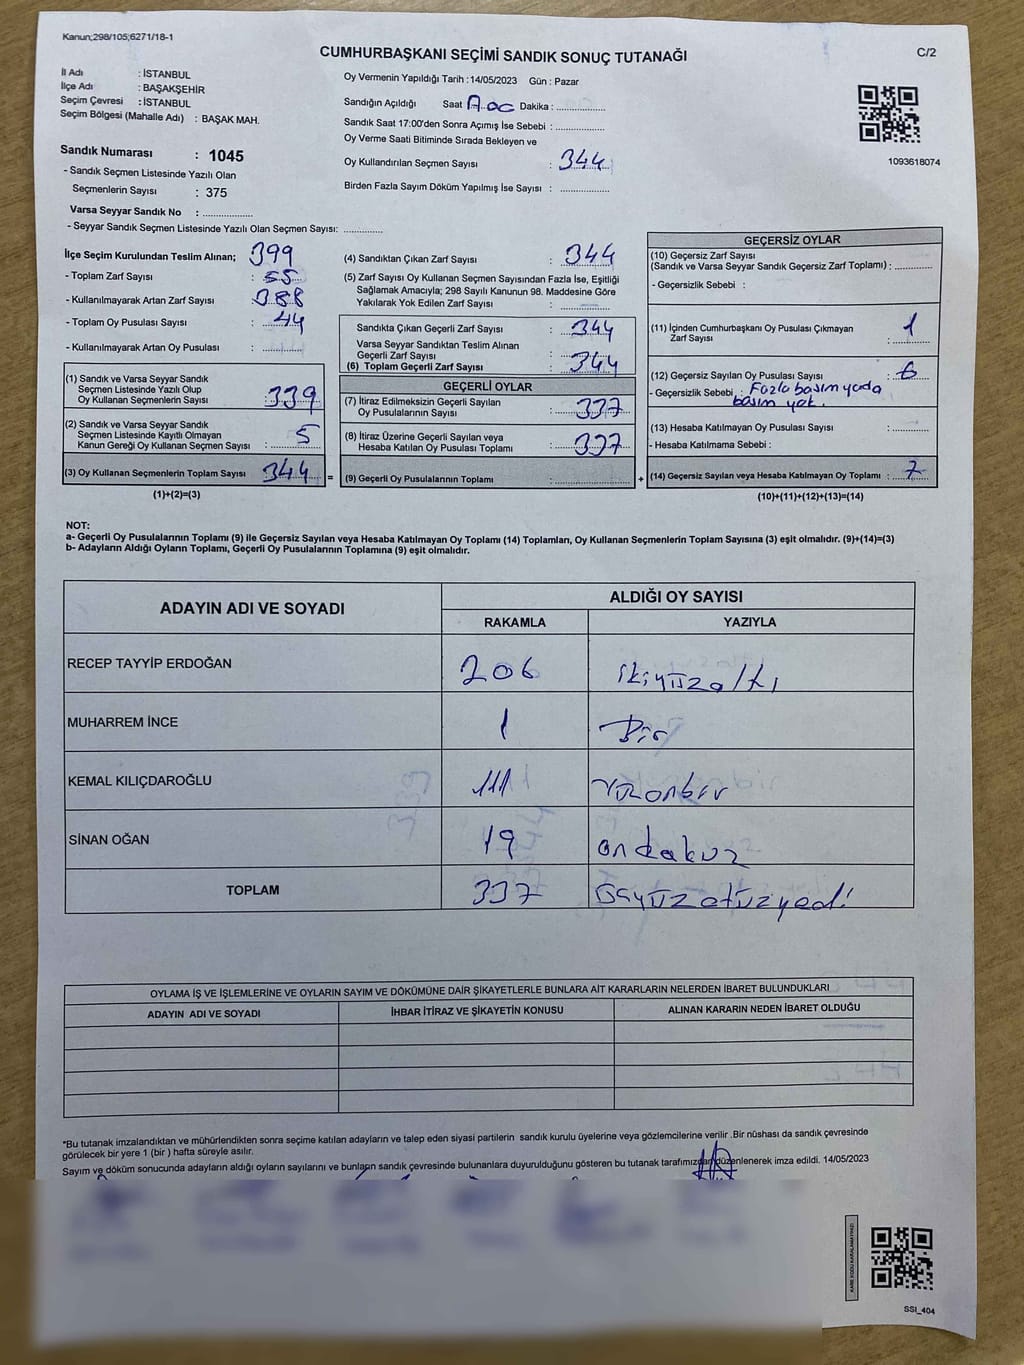 Kanun;298/105;6271/18-1
CUMHURBAŞKANI SEÇİMİ SANDIK SONUÇ TUTANAĞI
C/2
İl Adı : İSTANBUL
İlçe Adı : BAŞAKŞEHİR
Seçim Çevresi : İSTANBUL
Seçim Bölgesi (Mahalle Adı) : BAŞAK MAH.
Sandık Numarası : 1045
- Sandık Seçmen Listesinde Yazılı Olan
Seçmenlerin Sayısı : 375
Varsa Seyyar Sandık No : ................
- Seyyar Sandık Seçmen Listesinde Yazılı Olan Seçmen Sayısı: ............
Oy Vermenin Yapıldığı Tarih : 14/05/2023 Gün : Pazar
Sandığın Açıldığı Saat Dakika : ................
Sandık Saat 17:00'den Sonra Açımış İse Sebebi : ................
Oy Verme Saati Bitiminde Sırada Bekleyen ve
Oy Kullandırılan Seçmen Sayısı : 344
Birden Fazla Sayım Döküm Yapılmış İse Sayısı : ................
1093618074
İlçe Seçim Kurulundan Teslim Alınan; 399
- Toplam Zarf Sayısı : 55
- Kullanılmayarak Artan Zarf Sayısı : 388
- Toplam Oy Pusulası Sayısı : 44
- Kullanılmayarak Artan Oy Pusulası : ............
(1) Sandık ve Varsa Seyyar Sandık
Seçmen Listesinde Yazılı Olup
Oy Kullanan Seçmenlerin Sayısı : 339
(2) Sandık ve Varsa Seyyar Sandık
Seçmen Listesinde Kayıtlı Olmayan
Kanun Gereği Oy Kullanan Seçmen Sayısı : 5
(3) Oy Kullanan Seçmenlerin Toplam Sayısı 344 =
(1)+(2)=(3)
(4) Sandıktan Çıkan Zarf Sayısı : 344
(5) Zarf Sayısı Oy Kullanan Seçmen Sayısından Fazla İse, Eşitliği
Sağlamak Amacıyla; 298 Sayılı Kanunun 98. Maddesine Göre
Yakılarak Yok Edilen Zarf Sayısı : ............
Sandıkta Çıkan Geçerli Zarf Sayısı : 344
Varsa Seyyar Sandıktan Teslim Alınan
Geçerli Zarf Sayısı :
(6) Toplam Geçerli Zarf Sayısı : 344
GEÇERLİ OYLAR
(7) İtiraz Edilmeksizin Geçerli Sayılan
Oy Pusulalarının Sayısı : 337
(8) İtiraz Üzerine Geçerli Sayılan veya
Hesaba Katılan Oy Pusulası Toplamı : 337
(9) Geçerli Oy Pusulalarının Toplamı : ................ +
GEÇERSİZ OYLAR
(10) Geçersiz Zarf Sayısı
(Sandık ve Varsa Seyyar Sandık Geçersiz Zarf Toplamı) : ............
- Geçersizlik Sebebi :
(11) İçinden Cumhurbaşkanı Oy Pusulası Çıkmayan
Zarf Sayısı : 1
(12) Geçersiz Sayılan Oy Pusulası Sayısı : 6
- Geçersizlik Sebebi : Fazla basım yada
basım yok.
(13) Hesaba Katılmayan Oy Pusulası Sayısı : ............
- Hesaba Katılmama Sebebi :
(14) Geçersiz Sayılan veya Hesaba Katılmayan Oy Toplamı : 7
(10)+(11)+(12)+(13)=(14)
NOT:
a- Geçerli Oy Pusulalarının Toplamı (9) ile Geçersiz Sayılan veya Hesaba Katılmayan Oy Toplamı (14) Toplamları, Oy Kullanan Seçmenlerin Toplam Sayısına (3) eşit olmalıdır. (9)+(14)=(3)
b- Adayların Aldığı Oyların Toplamı, Geçerli Oy Pusulalarının Toplamına (9) eşit olmalıdır.
ADAYIN ADI VE SOYADI ALDIĞI OY SAYISI
RAKAMLA YAZIYLA
RECEP TAYYİP ERDOĞAN 206 ikiyüzaltı
MUHARREM İNCE 1 Bir
KEMAL KILIÇDAROĞLU 111 yüzonbir
SİNAN OĞAN 19 ondokuz
TOPLAM 337 üçyüzotuzyedi
OYLAMA İŞ VE İŞLEMLERİNE VE OYLARIN SAYIM VE DÖKÜMÜNE DAİR ŞİKAYETLERLE BUNLARA AİT KARARLARIN NELERDEN İBARET BULUNDUKLARI
ADAYIN ADI VE SOYADI İHBAR İTİRAZ VE ŞİKAYETİN KONUSU ALINAN KARARIN NEDEN İBARET OLDUĞU
*Bu tutanak imzalandıktan ve mühürlendikten sonra seçime katılan adayların ve talep eden siyasi partilerin sandık kurulu üyelerine veya gözlemcilerine verilir .Bir nüshası da sandık çevresinde
görülecek bir yere 1 (bir ) hafta süreyle asılır.
Sayım ve döküm sonucunda adayların aldığı oyların sayılarını ve bunların sandık çevresinde bulunanlara duyurulduğunu gösteren bu tutanak tarafımızdan düzenlenerek imza edildi. 14/05/2023
SSI_404